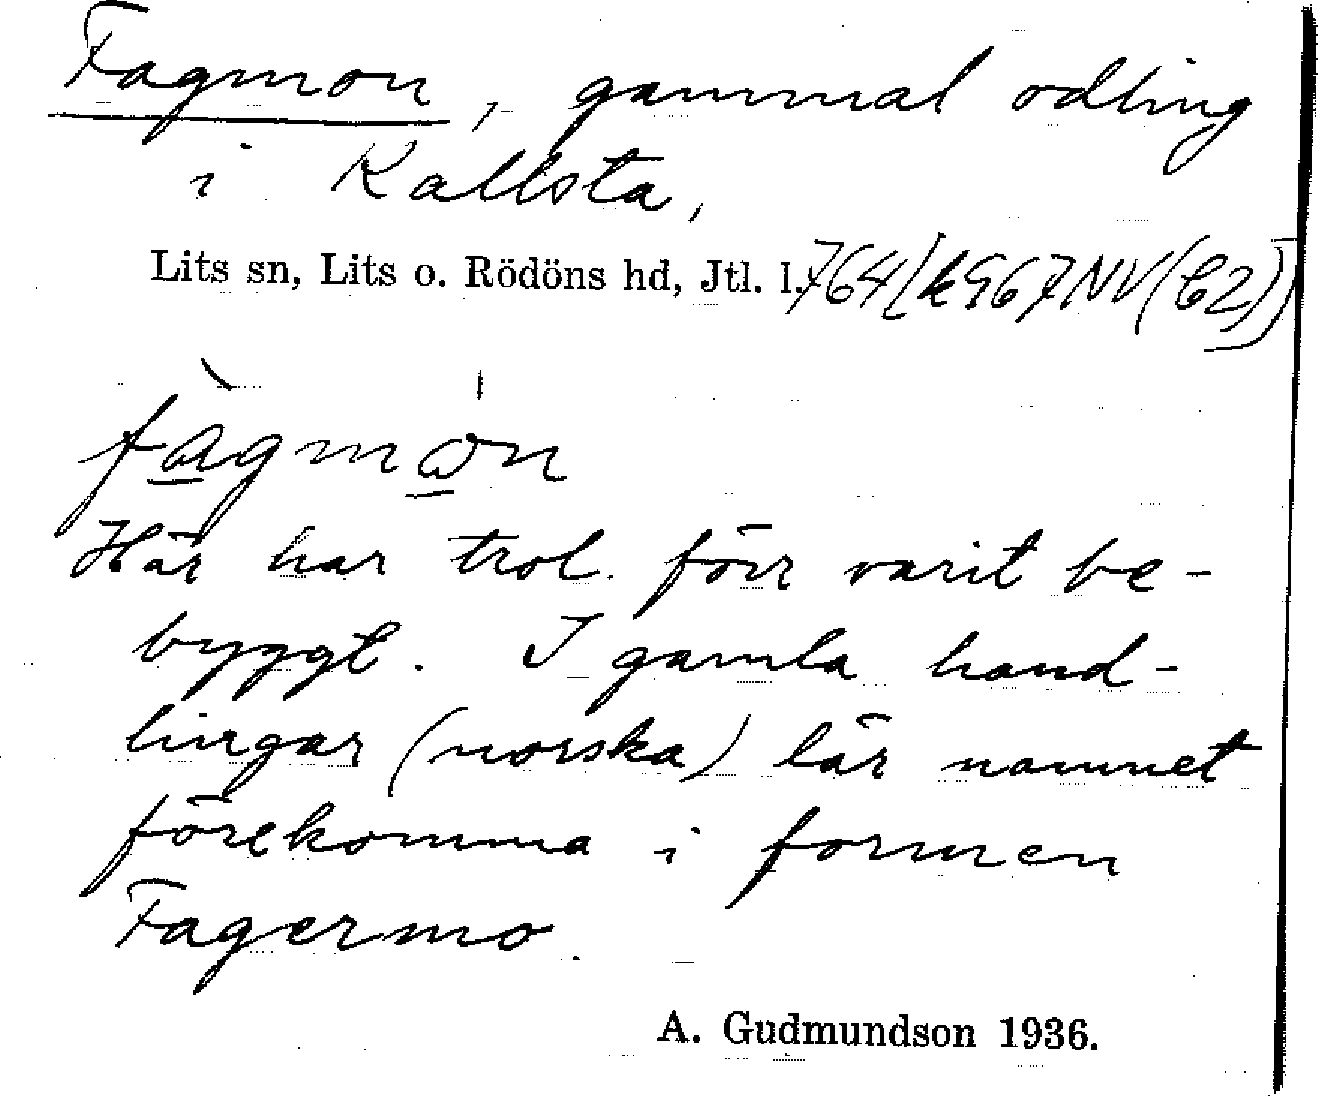 Fagmon, gammal odling
i Kallsta,
Lits sn, Lits o. Rödöns hd, Jtl. l. 764/k967NV(C2)
fàgmo̍n
Här har trol. förr varit be-
byggt. I gamla hand-
lingar (norska) lär namnet
förekomma i formen
Fagermo.
A. Gudmundson 1936.